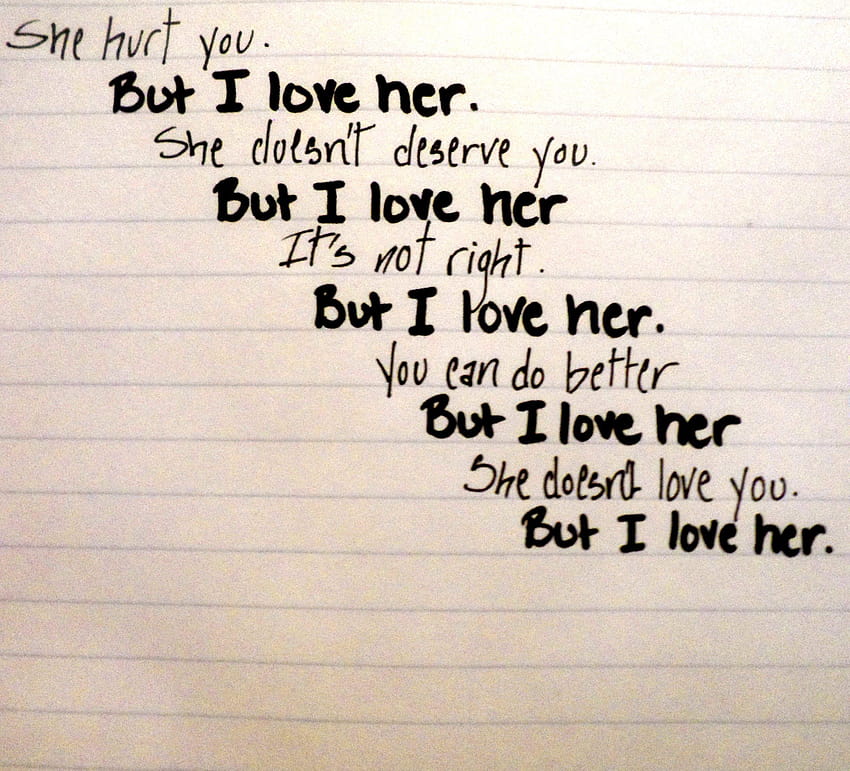 She hurt you.
But I love her.
She doesn't deserve you.
But I love her
It's not right.
But I love her.
You can do better
But I love her
She doesn't love you.
But I love her.